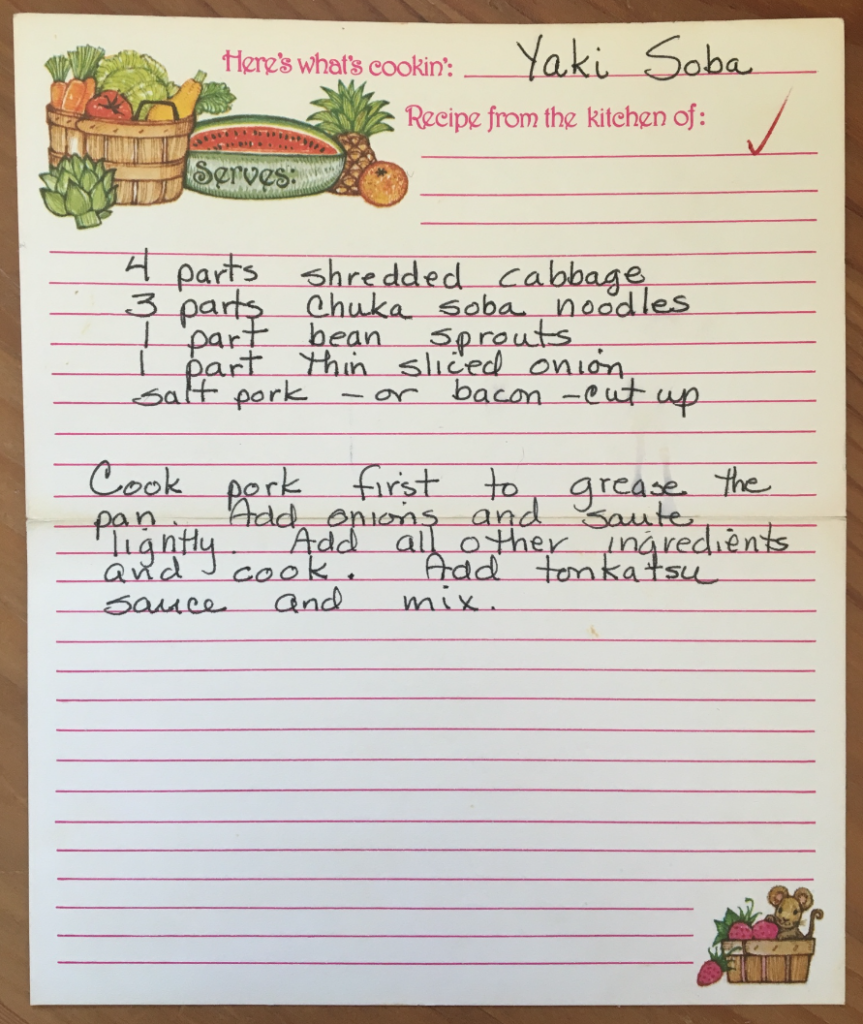 Here's what's cookin': Yaki Soba
Recipe from the kitchen of:
Serves:
4 parts shredded cabbage
3 parts Chuka soba noodles
1 part bean sprouts
1 part thin sliced onion
salt pork - or bacon - cut up
Cook pork first to grease the
pan. Add onions and saute
lightly. Add all other ingredients
and cook. Add tonkatsu
sauce and mix.